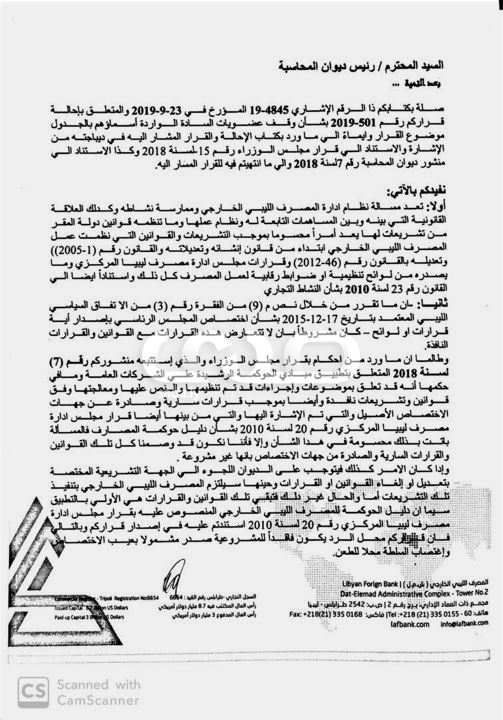 السيد المحترم / رئيس ديوان المحاسبة
بعد التحية ...
صلة بكتابكم ذا الرقم الإشاري 4845-19 المؤرخ في 23-9-2019 والمتعلق بإحالة
قراركم رقم 501-2019 بشأن وقف عضويات السادة الواردة أسماؤهم بالجدول
موضوع القرار وإيماءً الى ما ورد بكتاب الإحالة والقرار المشار اليه في ديباجته من
الإشارة والاستناد الى قرار مجلس الوزراء رقم 15-لسنة 2018 وكذا الاستناد الى
منشور ديوان المحاسبة رقم 7لسنة 2018 والي ما انتهيتم فيه للقرار المسار اليه.
نفيدكم بالآتي:
أولا: تعد مسالة نظام ادارة المصرف الليبي الخارجي وممارسة نشاطه وكذلك العلاقة
القانونية التي بينه وبين المساهمات التابعة له ونظام عملها وما تنظمه قوانين دولة المقر
من تشريعات لها يعد أمراً محسوما بموجب التشريعات والقوانين التي نظمت عمل
المصرف الليبي الخارجي ابتداء من قانون إنشائه وتعديلاته والقانون رقم (1-2005))
وتعديله بالقانون رقم (46-2012) وقرارات مجلس ادارة مصرف ليبيا المركزي وما
يصدره من لوائح تنظيمية او ضوابط رقابية لعمل المصرف كل ذلك واستناداً ايضا الى
القانون رقم 23 لسنة 2010 بشأن النشاط التجاري
ثانيا: -ان ما تقرر من خلال نص م (9) من الفقرة رقم (3) من الاتفاق السياسي
الليبي المعتمد بتاريخ 17-12-2015 بشأن اختصاص المجلس الرئاسي بإصدار أية
قرارات او لوائح – كان مشروطاً بان لا تتعارض هذه القرارات مع القوانين والقرارات
النافذة.
وطالما ان ما ورد من احكام بقرار مجلس الوزراء والذي إستتبعه منشوركم رقم (7)
لسنة 2018 المتعلق بتطبيق مبادئ الحوكمة الرشيدة على الشركات العامة ومافي
حكمها أنه قد تعلق بموضوعات وإجراءات قد تم تنظيمها والنص عليها ومعالجتها وفق
قوانين وتشريعات نافذة وأيضا بموجب قرارات سارية وصادرة عن جهات
الاختصاص الأصيل والتي تم الإشارة اليها والتي من بينها أيضا قرار مجلس ادارة
مصرف ليبيا المركزي رقم 20 لسنة 2010 بشأن دليل حوكمة المصارف فالمسألة
باتت بذلك محسومة في هذا الشأن وإلا فأننا نكون قد وصمنا كل تلك القوانين
والقرارات السارية والصادرة من جهات الاختصاص بانها غير مشروعة .
وإذا كان الامر كذلك فيتوجب على الديوان اللجوء الى الجهة التشريعية المختصة
بتعديل او إلغاء القوانين او القرارات وحينها سيلتزم المصرف الليبي الخارجي بتنفيذ
تلك التشريعات أما والحال غير ذلك فتبقى تلك القوانين والقرارات هي الأولي بالتطبيق
سيما ان دليل الحوكمة للمصرف الليبي الخارجي المنصوص عليه بقرار مجلس ادارة
مصرف ليبيا المركزي رقم 20 لسنة 2010 استندتم عليه في إصدار قراركم وبالتالي
فان قراركم محل الرد يكون فاقداً للمشروعية صدر مشمولا بعيب الاختصاص
وإغتصاب السلطة محلا للطعن.
المصرف الليبي الخارجي (ش.م.ل)
Libyan Forign Bank
Dat-Elemad Administrative Complex - Tower No.2
مجمع ذات العماد الإداري، برج رقم 2 | ص.ب: 2542 طرابلس - ليبيا
Fax: +218(21) 335 0168 :فاكس| Tel: +218 (21) 335 0155 - 60 :هاتف
lafbank.com info@lafbank.com
السجل التجاري -طرابلس رقم القيد : 6654 - Tripoli Registration No:6654
رأس المال المكتتب فيه 8.7 مليار دولار أمريكي US Dollars
رأس المال المدفوع 3 مليار دولار أمريكي Paid-up Capital:3 US Dollars
CS
Scanned with
CamScanner